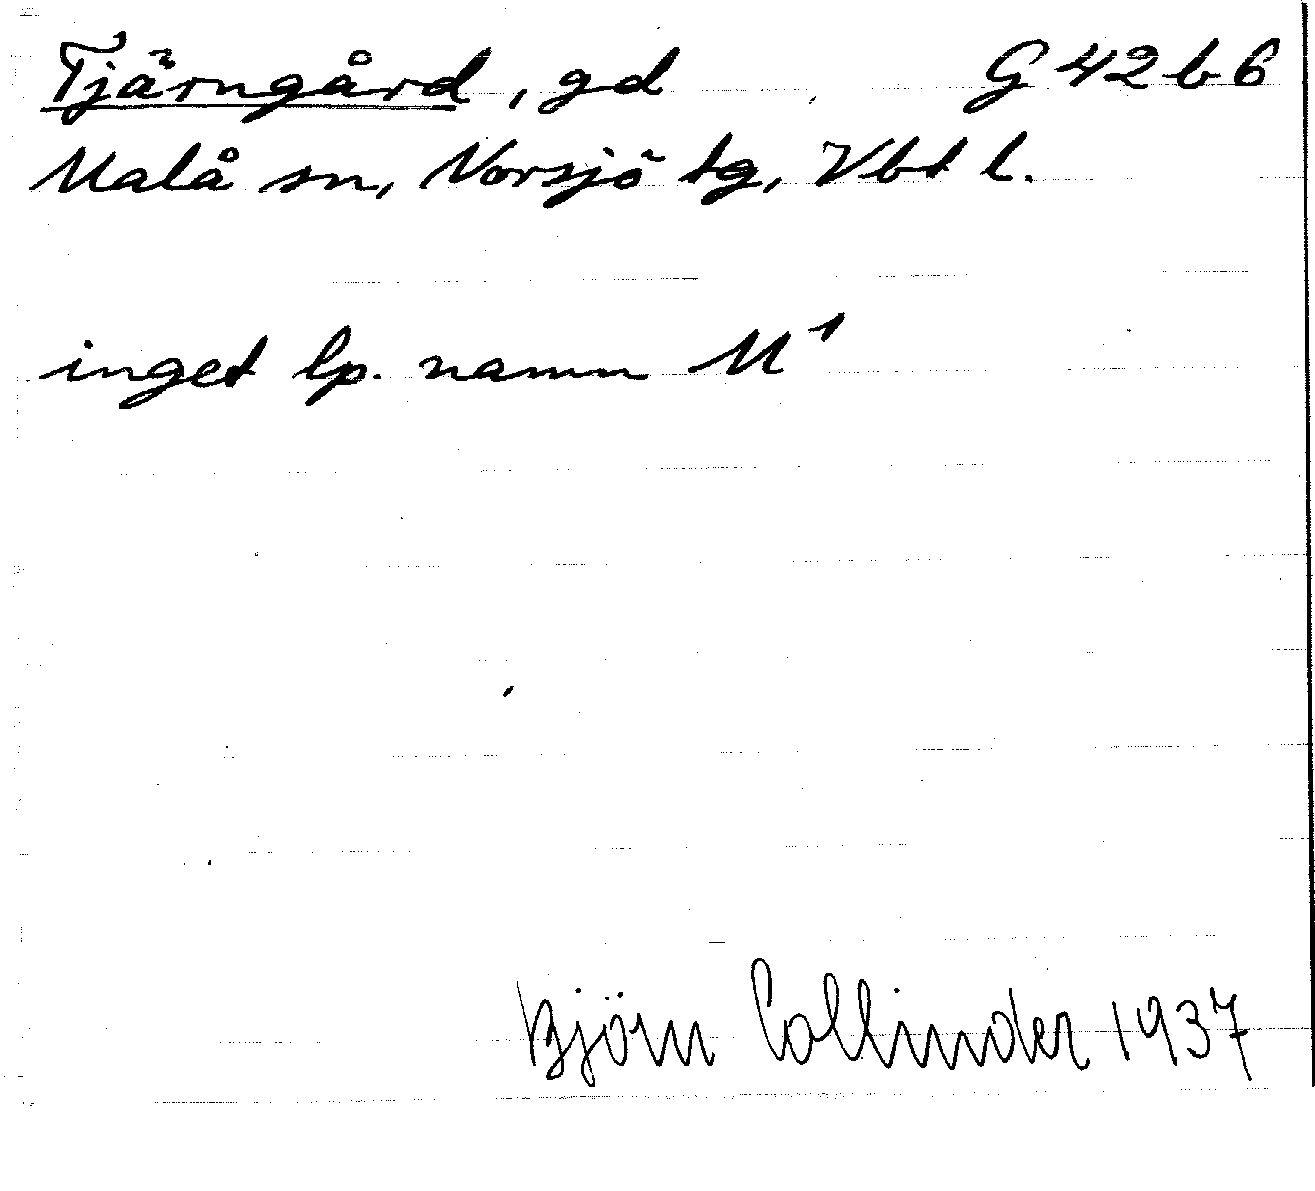 Tjärngård, gd G 42 b 6
Malå sn, Norsjö tg, Vbt l.
inget lp. namn M¹
Björn Collinder 1937